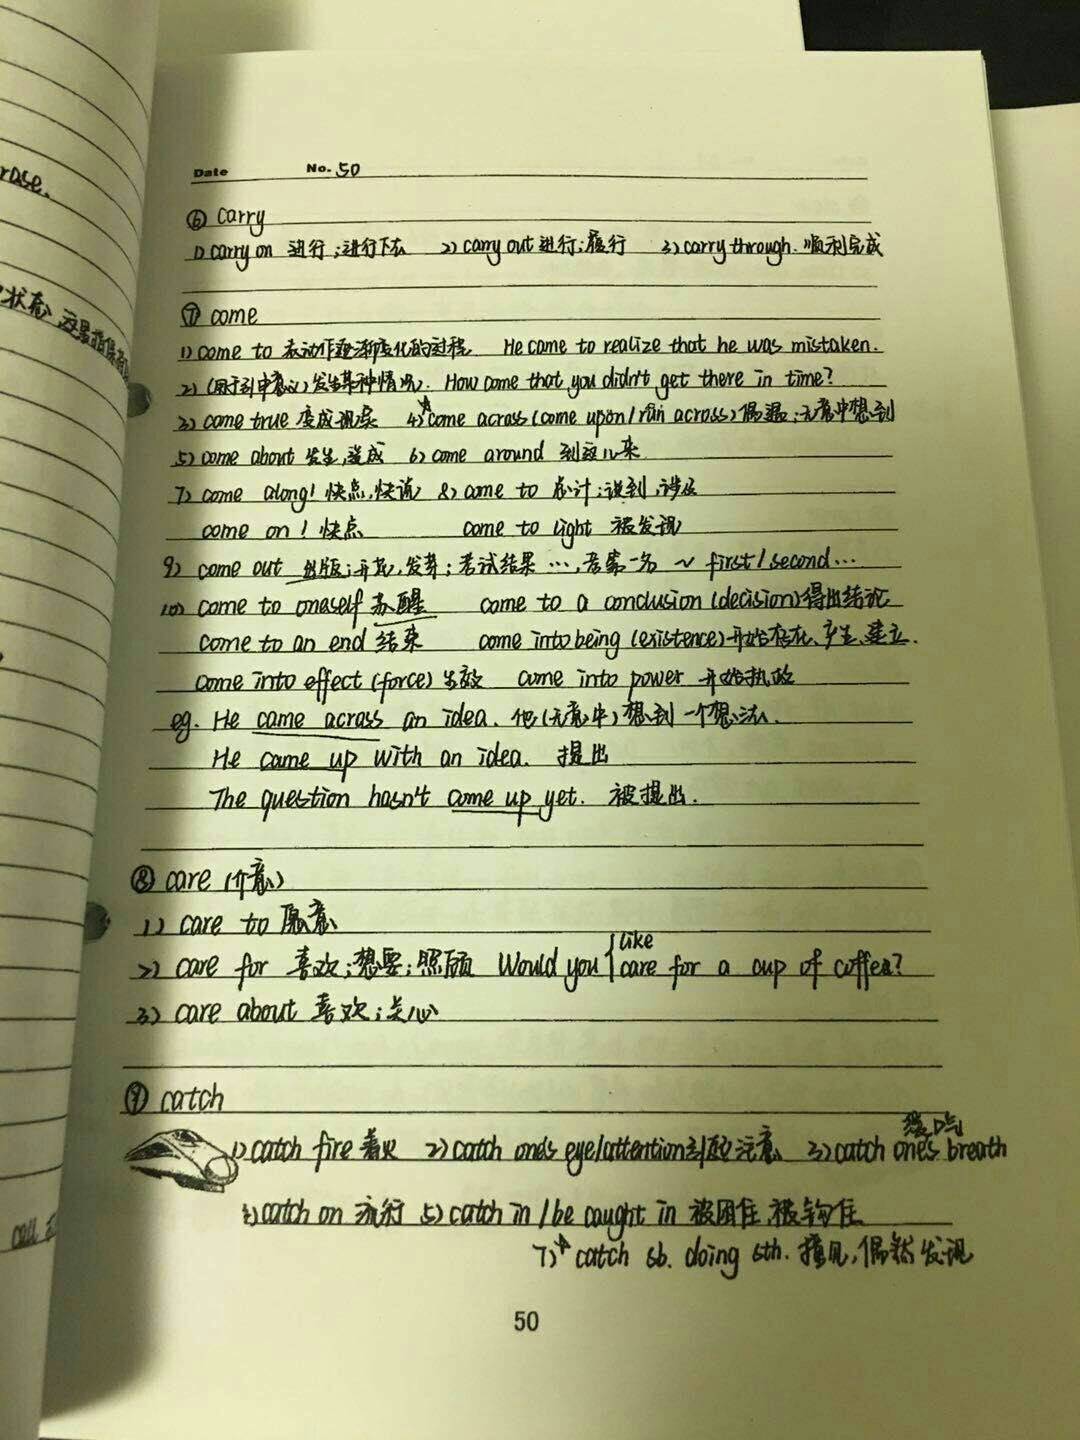 rase.
状态
Date No. 50
⑥ carry
1) carry on 进行;进行下去 2) carry out 进行;履行 3) carry through. 顺利完成
⑦ come
1) come to 表动作逐渐变化的过程 He came to realize that he was mistaken.
2) (用于引申意义)发生某种情况). How come that you didn't get there in time?
3) come true 变成现实 4)☆come across (come upon/run across) 偶遇;无意中想到
5) come about 发生,造成 6) come around 到这儿来
7) come along! 快点,快请 8) come to 总计;说到,涉及
come on! 快点 come to light 被发现
9) come out 出版;开花,发芽;考试结果…,考第一名 ~ first/second…
10) come to oneself 苏醒 come to a conclusion (decision) 得出结论
come to an end 结束 come into being (existence) 开始存在、产生、建立.
come into effect (force) 生效 come into power 开始执政
eg. He came across an idea. 他(无意中)想到一个想法.
He came up with an idea. 提出
The question hasn't come up yet. 被提出.
⑧ care (介意)
1) care to 愿意
2) care for 喜欢;想要;照顾 Would you { like
care for a cup of coffee?
3) care about 喜欢;关心
⑨ catch
缓口气
1) catch fire 着火 2) catch one's eye/attention 引起注意 3) catch one's breath
4) catch on 流行 5) catch in / be caught in 被困住,被钩住
7)☆ catch sb. doing sth. 撞见,偶然发现
call
50